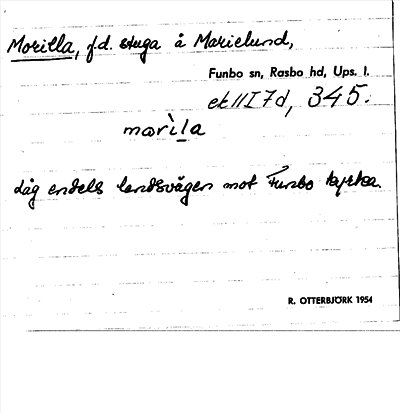 Morilla, f.d. stuga å Marielund,
Funbo sn, Rasbo hd, Ups. l.
ek 11I7d, 345.
marìla
Låg endels landsvägen mot Funbo kyrka.
R. OTTERBJÖRK 1954